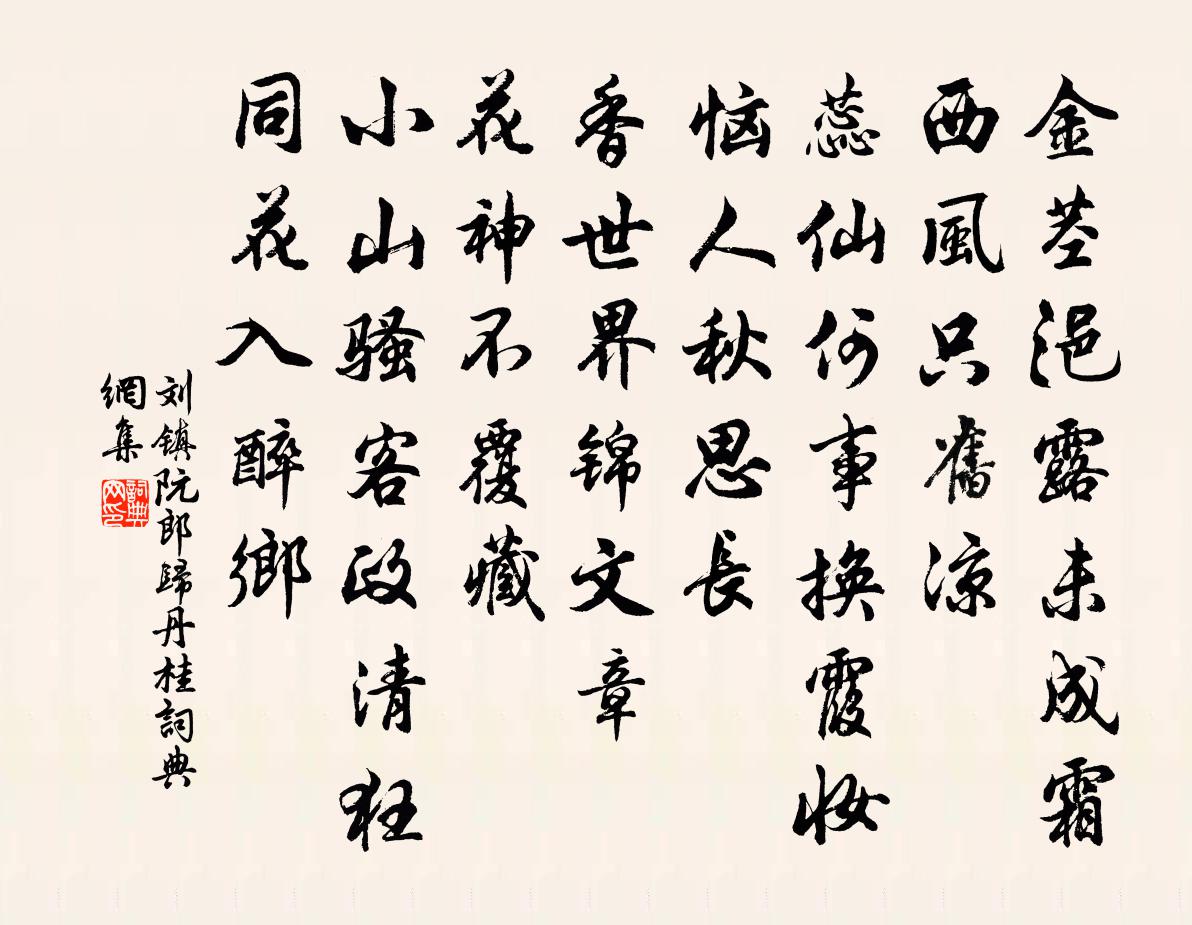 金茎浥露未成霜
西風只舊凉
蕊仙何事換霞妆
恼人秋思長
香世界锦文章
花神不覆藏
小山骚客政清狂
同花入醉鄉
刘镇阮郎歸丹桂詞典
網集
詞典
网印